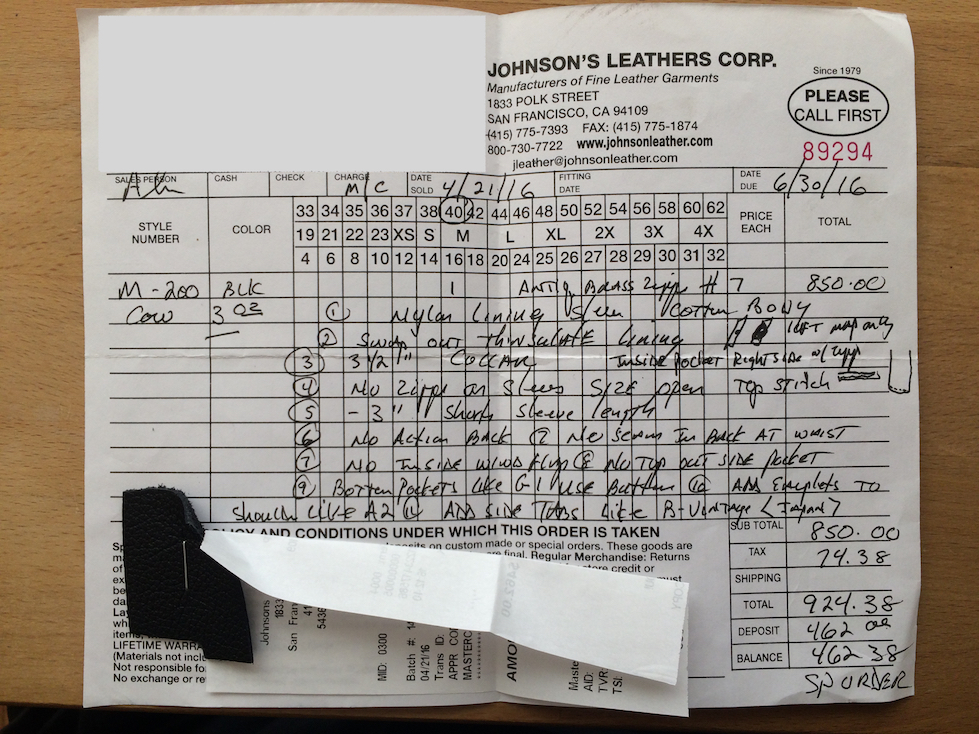 JOHNSON'S LEATHERS CORP.
Manufacturers of Fine Leather Garments
1833 POLK STREET
SAN FRANCISCO, CA 94109
(415) 775-7393 FAX: (415) 775-1874
800-730-7722 www.johnsonleather.com
jleather@johnsonleather.com
Since 1979
PLEASE
CALL FIRST
89294
SALES PERSON CASH CHECK CHARGE M/C DATE SOLD 4/21/16 FITTING DATE DATE DUE 6/30/16
STYLE NUMBER COLOR PRICE EACH TOTAL
33 34 35 36 37 38 40 42 44 46 48 50 52 54 56 58 60 62
19 21 22 23 XS S M L XL 2X 3X 4X
4 6 8 10 12 14 16 18 20 24 25 26 27 28 29 30 31 32
M-200 BLK 1 ANTIQ BRASS Zipp # 7 850.00
Cow 3 oz ① Nylon Lining Cotton BODY
② SWAP OUT THINSULATE LINING LEFT map only
③ 3 1/2 " COLLAR INSIDE POCKET RIGHT SIDE w/ Zipp
④ No Zipp on Sleeves SIZE open TOP STITCH
⑤ - 3 " Short Sleeve length
⑥ No Action Back ⑦ No SEAM In BACK AT WAIST
⑦ No INSIDE WIND Flap ⑧ No Top OUT SIDE pocket
⑨ Botton Pockets Like G1 USE Button ⑩ ADD Epaulets TO
Shoulder LIKE A2 ⑪ ADD SIDE TABS Like
SUB TOTAL 850.00
TAX 74.38
SHIPPING
TOTAL 924.38
DEPOSIT 462 00
BALANCE 462 38
SP ORDER
POLICY AND CONDITIONS UNDER WHICH THIS ORDER IS TAKEN
deposits on custom made or special orders. These goods are
are final. Regular Merchandise: Returns
store credit or
must
LIFETIME
(Materials not
Not responsible for
No exchange or
Johnsons
1833
San Fran
MID: 0300
Batch #:
04/21/16
Trans ID:
APPR